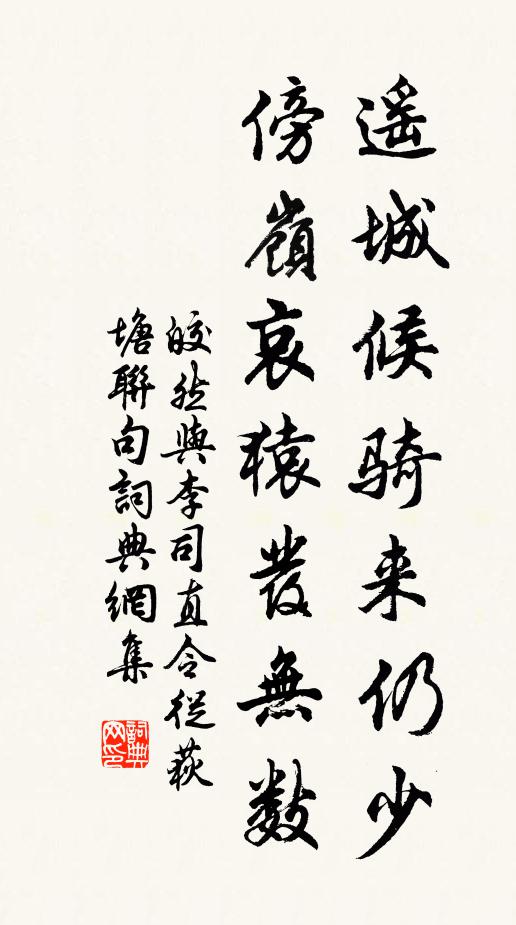 遥城候騎来仍少
傍嶺哀猿發無數
皎然與李司直令從荻
塘聯句詞典網集
詞典
网印